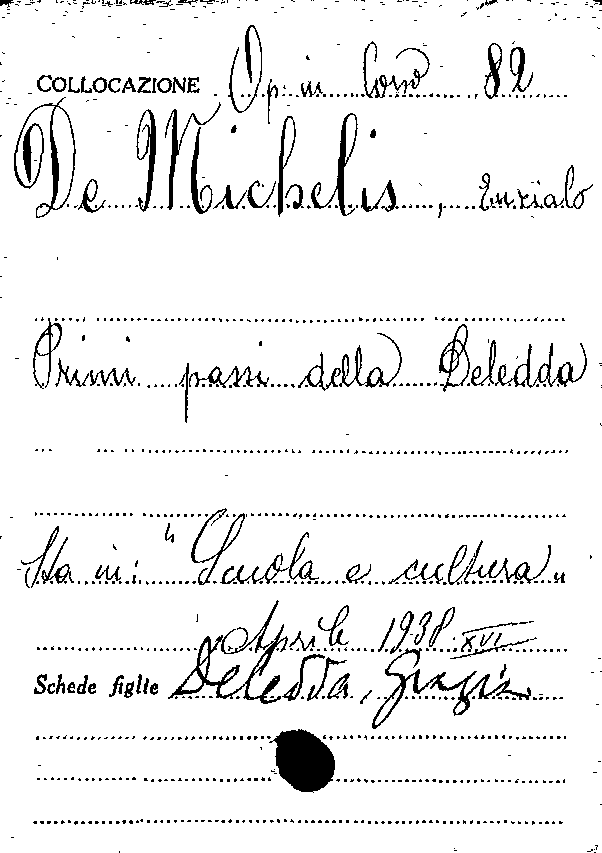 COLLOCAZIONE Op. in Corso 82
De Michelis, Eurialo
Primi passi della Deledda
Sta in: "Scuola e cultura"
Aprile 1938 XVI
Schede figlie Deledda, Grazia